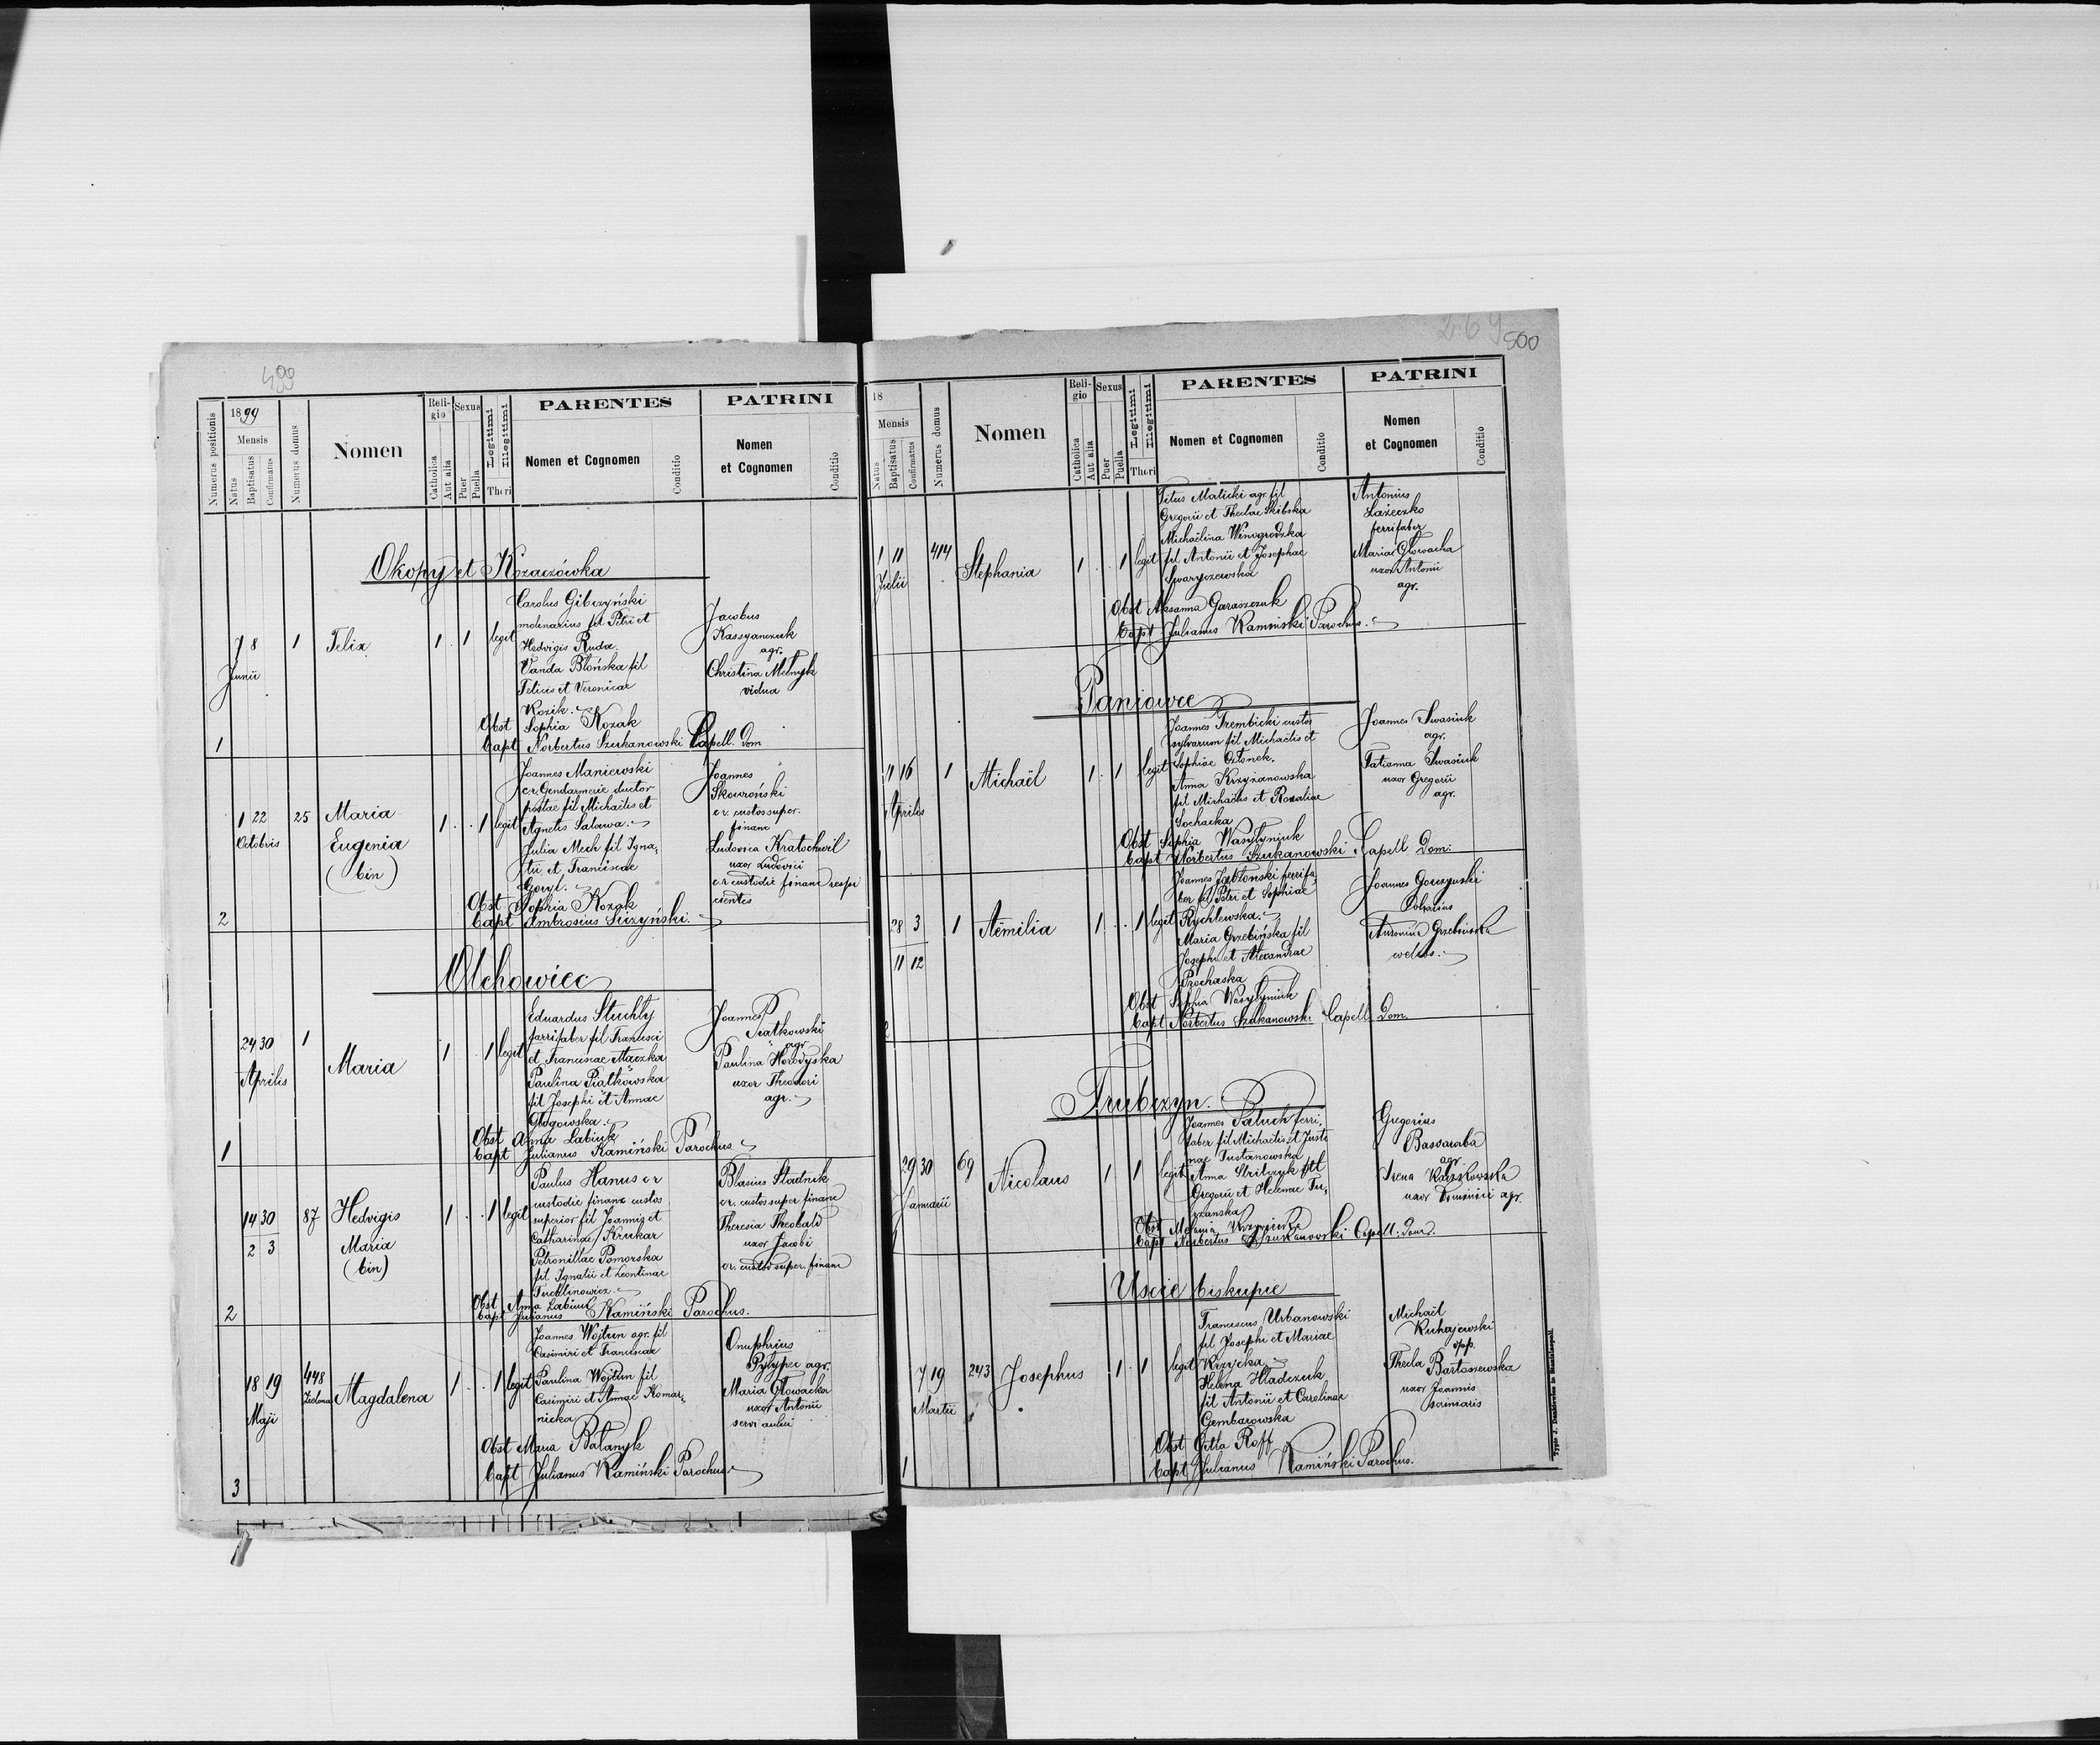 499
Numerus positionis
1899
Mensis
Natus
Baptisatus
Confirmatus
Numerus domus
Nomen
Religio
Catholica
Aut alia
Sexus
Puer
Puella
Legitimi
Illegitimi
Thori
PARENTES
Nomen et Cognomen
Conditio
PATRINI
Nomen
et Cognomen
Conditio
Okopy et Kozaczówka
1
7 8
Junii
1
Felix
1 1 legit
Carolus Gibczyński
molinarius fil Petri et
Hedvigis Ruda.
Vanda Błońska fil
Felicis et Veronicae
Kozik.
Jacobus
Kassyanczuk
agr.
Christina Melnyk
vidua
Obst Sophia Kozak
Bapt Norbertus Szukanowski Capell. Dom
2
1 22
Octobris
25
Maria
Eugenia
(bin)
1 . . 1 legit
Joannes Maniewski
c.r. Gendarmerie ductor
postae fil Michaëlis et
Agnetis Salawa.
Julia Mech fil Igna-
tii et Franciscae
Goryl.
Joannes
Skowroński
c.r. custos super.
financ
Ludovica Kratochwil
uxor Ludovici
c.r custodie financ respi
cientis
Obst Sophia Kozak
Bapt Ambrosius Liczyński.
Olchowiec
1
24 30
Aprilis
1
Maria
1 1 legit
Eduardus Stuchły
farrifaber fil Francisci
et Franciscae Mączka
Paulina Piątkowska
fil Josephi et Annae
Głogowska.
Joannes
Piątkowski
agr
Paulina Horodyska
uxor Theodori
agr.
Obst Anna Labiuk
Bapt Julianus Kamiński Parochus
2
14 30
2 3
87
Hedvigis
Maria
(bin)
1 . . 1 legit
Paulus Hanus c r
custodie financ custos
superior fil Joannis et
Catharinae Krukar
Petronillae Pomorska
fil Ignatii et Leontinae
Blasius Stadnik
c r. custos super financ
Theresia Theobald
uxor Jacobi
c r. custod super. financ
Obst Anna Labiuk
Bapt Julianus Kamiński Parochus.
3
18 19
Maji
448
Magdalena
1 . . 1 legit
Joannes Wojtun agr. fil
Casimiri et Franciscae
Paulina Wojtun fil
Casimiri et Annae Komar-
nicka
Onuphrius
Pylypec agr.
Maria Głowacka
uxor Antonii
servi aulici
Obst Maria Bałanyk
Bapt Julianus Kamiński Parochus
269
500
18
Mensis
Natus
Baptisatus
Confirmatus
Numerus domus
Nomen
Religio
Catholica
Aut alia
Sexus
Puer
Puella
Legitimi
Illegitimi
Thori
PARENTES
Nomen et Cognomen
Conditio
PATRINI
Nomen
et Cognomen
Conditio
1 11
Julii
414
Stephania
1 . . 1 legit
Titus Malicki agr fil
Gregorii et Theclae Skibska
Michaëlina Winogrodzka
fil Antonii et Josephae
Swaryczewska
Antonius
Łażeczko
ferrifaber
Maria Głowacka
uxor Antonii
agr.
Obst Aksanna Garaszczuk
Bapt Julianus Kamiński Parochus.
Paniowce
11 16
Aprilis
1
Michaël
1 . 1 legit
Joannes Trembicki custos
sylvarum fil Michaëlis et
Sophiae Członek.
Anna Krzyżanowska
fil Michaëlis et Rosaliae
Sochacka
Joannes Iwasiuk
agr.
Tatianna Iwasiuk
uxor Gregorii
agr.
Obst Sophia Wasyłyniuk
Bapt Norbertus Szukanowski Capell Dom.
2
28 3
11 12
1
Aëmilia
1 . . 1 legit
Joannes Jabłoński ferrifa
ber fil Petri et Sophiae
Rychlewska.
Maria Grzebińska fil
Josephi et Alexandrae
Prochaska
Joannes Gorczyński
Antonina Grzebińska
coelebs.
Obst Sophia Wasyłyniuk
Bapt Norbertus Szukanowski Capell. Dom.
Trubczyn.
29 30
Januarii
69
Nicolaus
1 1 legit
Joannes Paluch ferri-
faber fil Michaëlis et Justi
nae Tustanowska
Anna Strilczuk fil
Gregorii et Helenae Tu-
rzanska
Gregorius
Bassaraba
agr
Irena
uxor Dominici agr.
Obst Melania
Bapt Norbertus Szukanowski Capell. Dom.
Uscie biskupie
1
7 19
Martii
243
Josephus
1 1 legit
Franciscus Urbanowski
fil Josephi et Mariae
Krzycka
Helena Hladczuk
fil Antonii et Carolinae
Gembarowska
Michaël
Ruhajewski
opp.
Thecla Bartoszewska
uxor Joannis
Obst Gitla Roff
Bapt Julianus Kamiński Parochus.